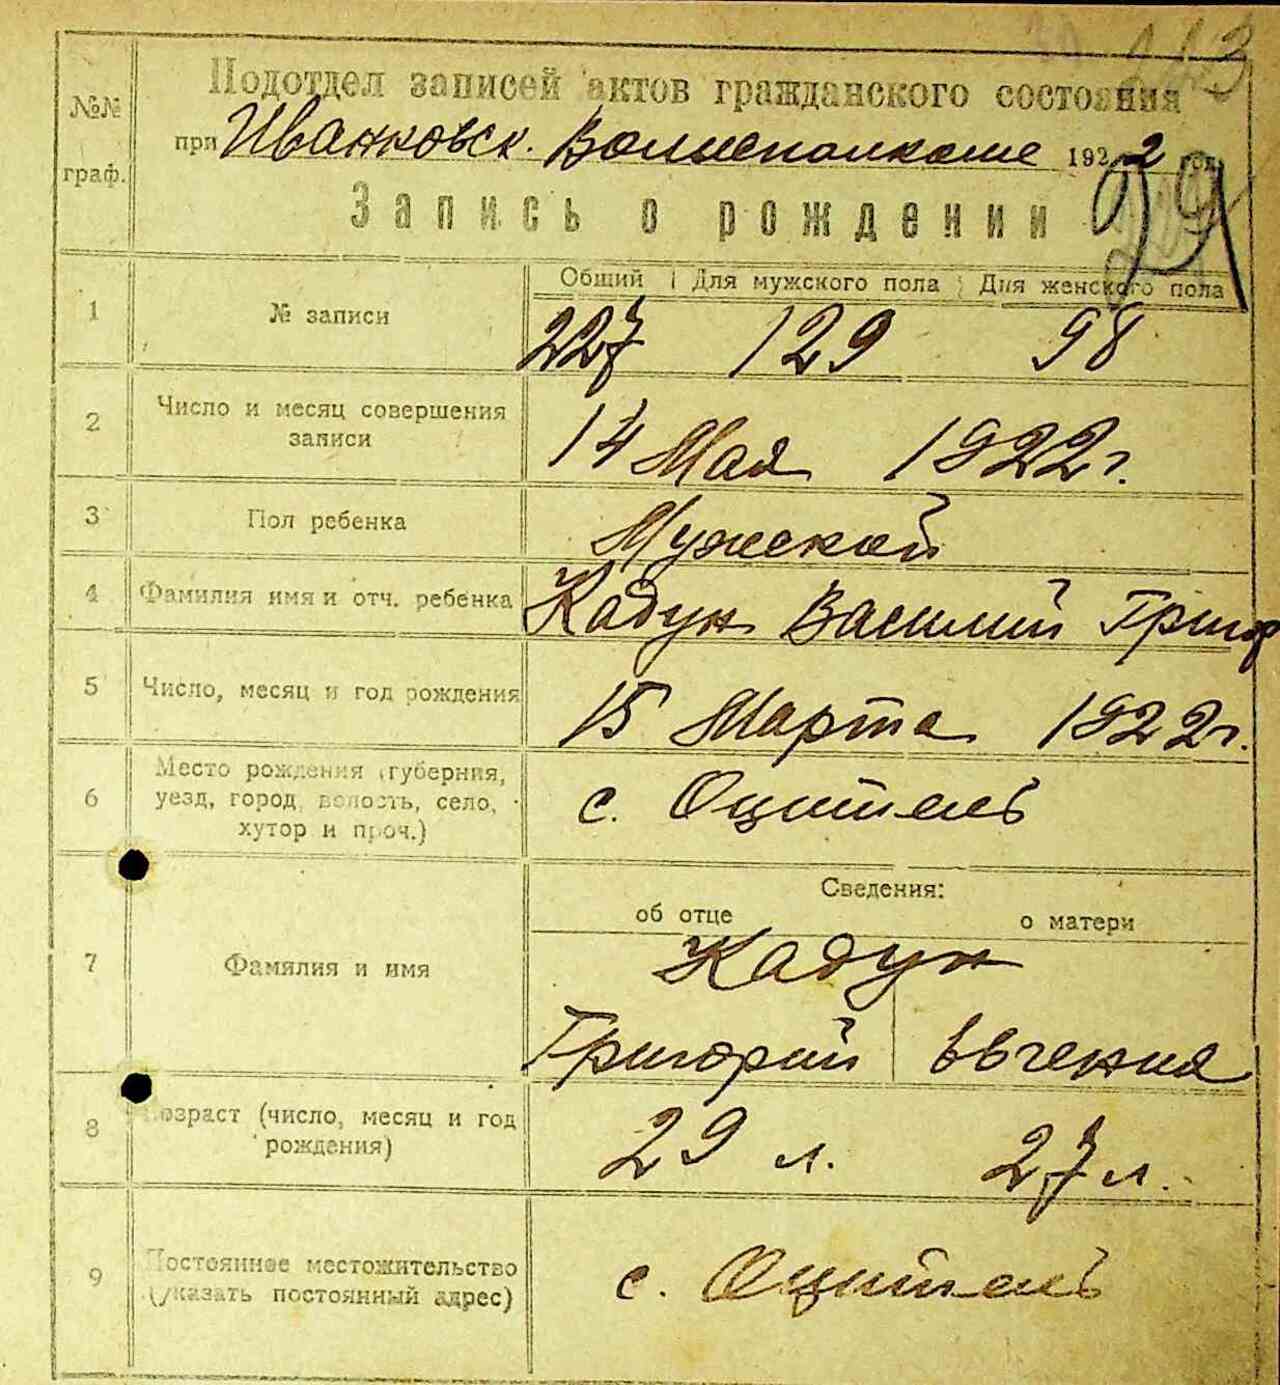 №№ граф.
Подотдел записей актов гражданского состояния
при Иванковск. Волисполкоме 1922 год
Запись о рождении
29
1
№ записи
Общий Для мужского пола Для женского пола
227 129 98
2
Число и месяц совершения
записи
14 Мая 1922 г.
3
Пол ребенка
Мужской
4
Фамилия имя и отч. ребенка
Кадун Василий Григор
5
Число, месяц и год рождения
15 Марта 1922 г.
6
Место рождения (губерния,
уезд, город, волость, село,
хутор и проч.)
с. Оцитель
Сведения:
об отце о матери
7
Фамилия и имя
Кадун
Григорий Евгения
8
Возраст (число, месяц и год
рождения)
29 л. 27 л.
9
Постоянное местожительство
(указать постоянный адрес)
с. Оцитель